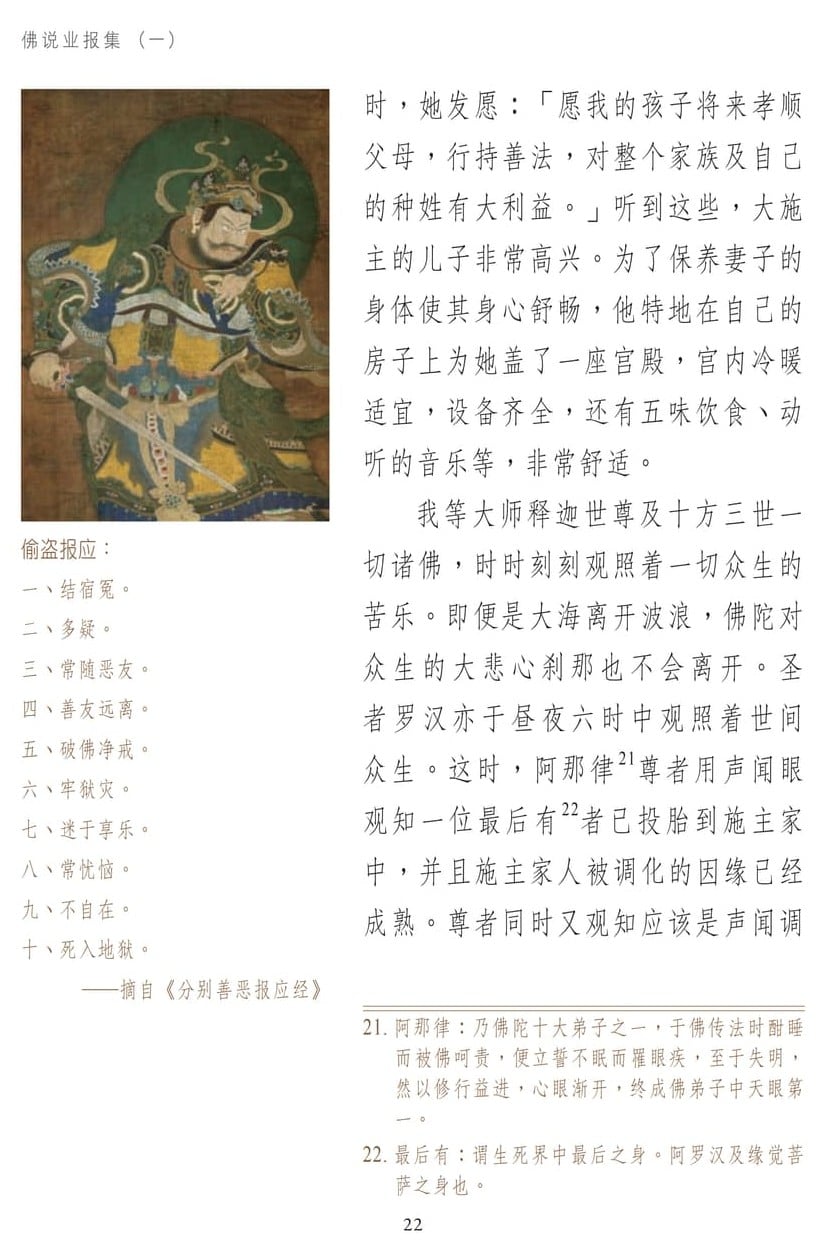 佛说业报集 （一）
偷盗报应：
一、结宿冤。
二、多疑。
三、常随恶友。
四、善友远离。
五、破佛净戒。
六、牢狱灾。
七、迷于享乐。
八、常忧恼。
九、不自在。
十、死入地狱。
——摘自《分别善恶报应经》
时，她发愿：「愿我的孩子将来孝顺
父母，行持善法，对整个家族及自己
的种姓有大利益。」听到这些，大施
主的儿子非常高兴。为了保养妻子的
身体使其身心舒畅，他特地在自己的
房子上为她盖了一座宫殿，宫内冷暖
适宜，设备齐全，还有五味饮食、动
听的音乐等，非常舒适。
我等大师释迦世尊及十方三世一
切诸佛，时时刻刻观照着一切众生的
苦乐。即便是大海离开波浪，佛陀对
众生的大悲心刹那也不会离开。圣
者罗汉亦于昼夜六时中观照着世间
众生。这时，阿那律21尊者用声闻眼
观知一位最后有22者已投胎到施主家
中，并且施主家人被调化的因缘已经
成熟。尊者同时又观知应该是声闻调
21. 阿那律：乃佛陀十大弟子之一，于佛传法时酣睡
而被佛呵责，便立誓不眠而罹眼疾，至于失明，
然以修行益进，心眼渐开，终成佛弟子中天眼第
一。
22. 最后有：谓生死界中最后之身。阿罗汉及缘觉菩
萨之身也。
22